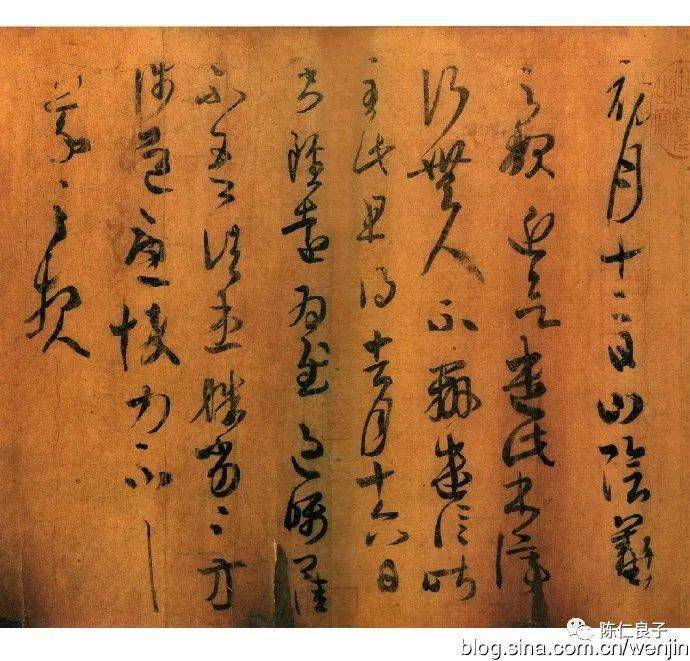 初月十二日山陰羲
之報近欲遣此書停
行無人不辦遣信昨
至此且得去月十六日
書雖遠為慰過囑卿佳
不吾諸患殊劣殊劣方
涉道憂悴力不具
羲之報
陈仁良子
blog.sina.com.cn/wenjin